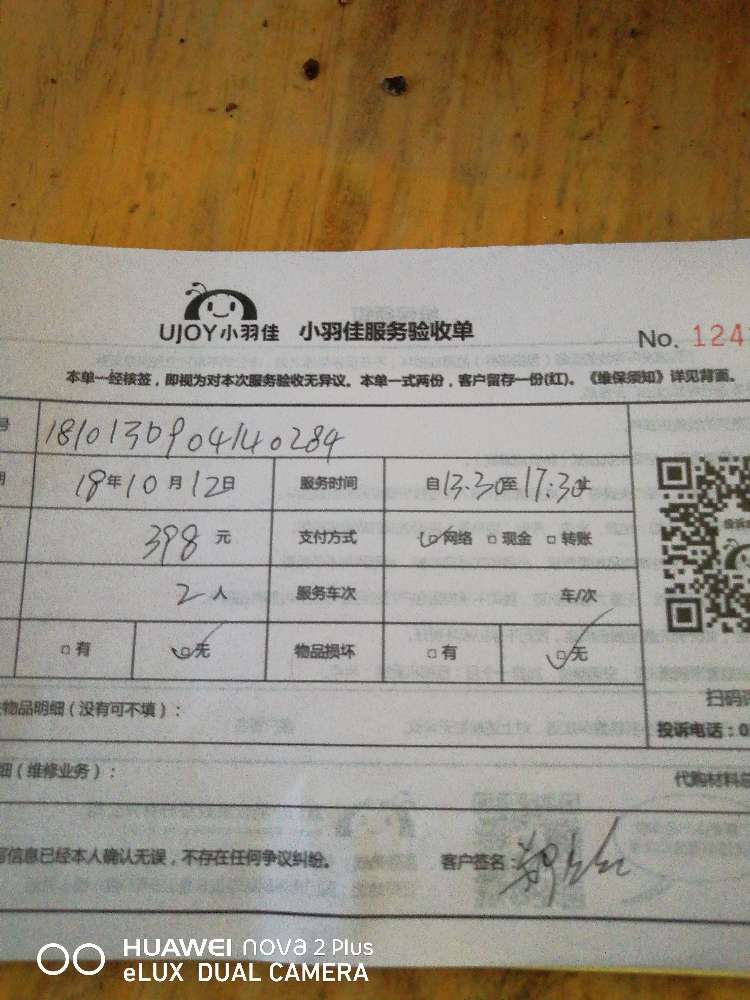 UJOY小羽佳 小羽佳服务验收单
No. 124
本单一经核签，即视为对本次服务验收无异议。本单一式两份，客户留存一份(红)。《维保须知》详见背面。
号 1810130904140284
期 18年10月12日 服务时间 自13.30至17:30止
398元 支付方式 网络 现金 转账
2人 服务车次 车/次
有 无 物品损坏 有 无
扫码
物品明细（没有可不填）：
投诉电话：0
细（维修业务）： 代购材料总
写信息已经本人确认无误，不存在任何争议纠纷。 客户签名：
HUAWEI nova 2 Plus
eLUX DUAL CAMERA